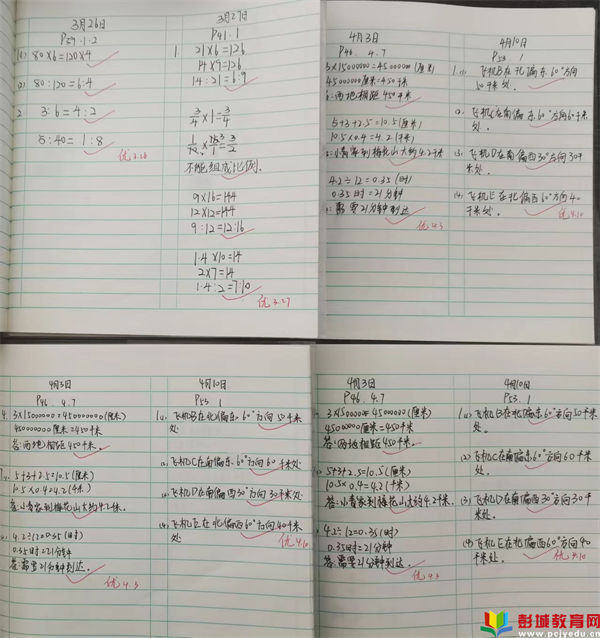 3月26日
P59.1.2
(1) 80×6=120×4
(2) 80:120=6:4
2 3:6=4:2
5:40=1:8
优3.26
3月27日
P41.1
1 21×6=126
14×9=126
14:21=6:9
3/4×1=3/4
不能组成比例.
9×16=144
12×12=144
9:12=12:16
1.4×10=14
2×7=14
1.4:2=7:10
优3.27
4月3日
P46. 4.7
3×15000000=45000000(厘米)
45000000厘米=450千米
两地相距450千米
5+3+2.5=10.5(厘米)
10.5×0.4=4.2(千米)
小青家到梅花山大约4.2千米
4.2÷12=0.35(时)
0.35时=21分钟
需要21分钟到达
优4.3
4月10日
P53.1
1.(1) 飞机B在北偏东60°方向
50千米处.
(2) 飞机C在南偏东60°方向60千米
处.
(3) 飞机D在南偏西30°方向30千米
处.
(4) 飞机E在北偏西60°方向40
千米处.
优4.10
4月3日
P46. 4.7
4. 3×15000000=45000000(厘米)
45000000厘米=450千米
答:两地相距450千米.
7.(1) 5+3+2.5=10.5(厘米)
10.5×0.4=4.2(千米)
答:小青家到梅花山大约4.2千米.
(2) 4.2÷12=0.35(时)
0.35时=21分钟
答:需要21分钟到达.
优4.3
4月10日
P53 1
1(1) 飞机B在北偏东60°方向50千米
处
(2) 飞机C在南偏东60°方向60千米处
(3) 飞机D在南偏西30°方向30千米处
(4) 飞机E在北偏西60°方向40千米
处
优4.10
4月3日
P46. 4.7
3×15000000=45000000(厘米)
45000000厘米=450千米
答:两地相距450千米.
5+3+2.5=10.5(厘米)
10.5×0.4=4.2(千米)
答:小青家到梅花山大约4.2千米.
4.2÷12=0.35(时)
0.35时=21分钟
答:需要21分钟到达.
优4.3
4月10日
P53.1
1(1) 飞机B在北偏东60°方向50千米
处.
(2) 飞机C在南偏东60°方向60千米
处.
(3) 飞机D在南偏西30°方向30千
米处.
(4) 飞机E在北偏西60°方向40
千米处.
优4.10
彭城教育网
www.pcjyedu.cn